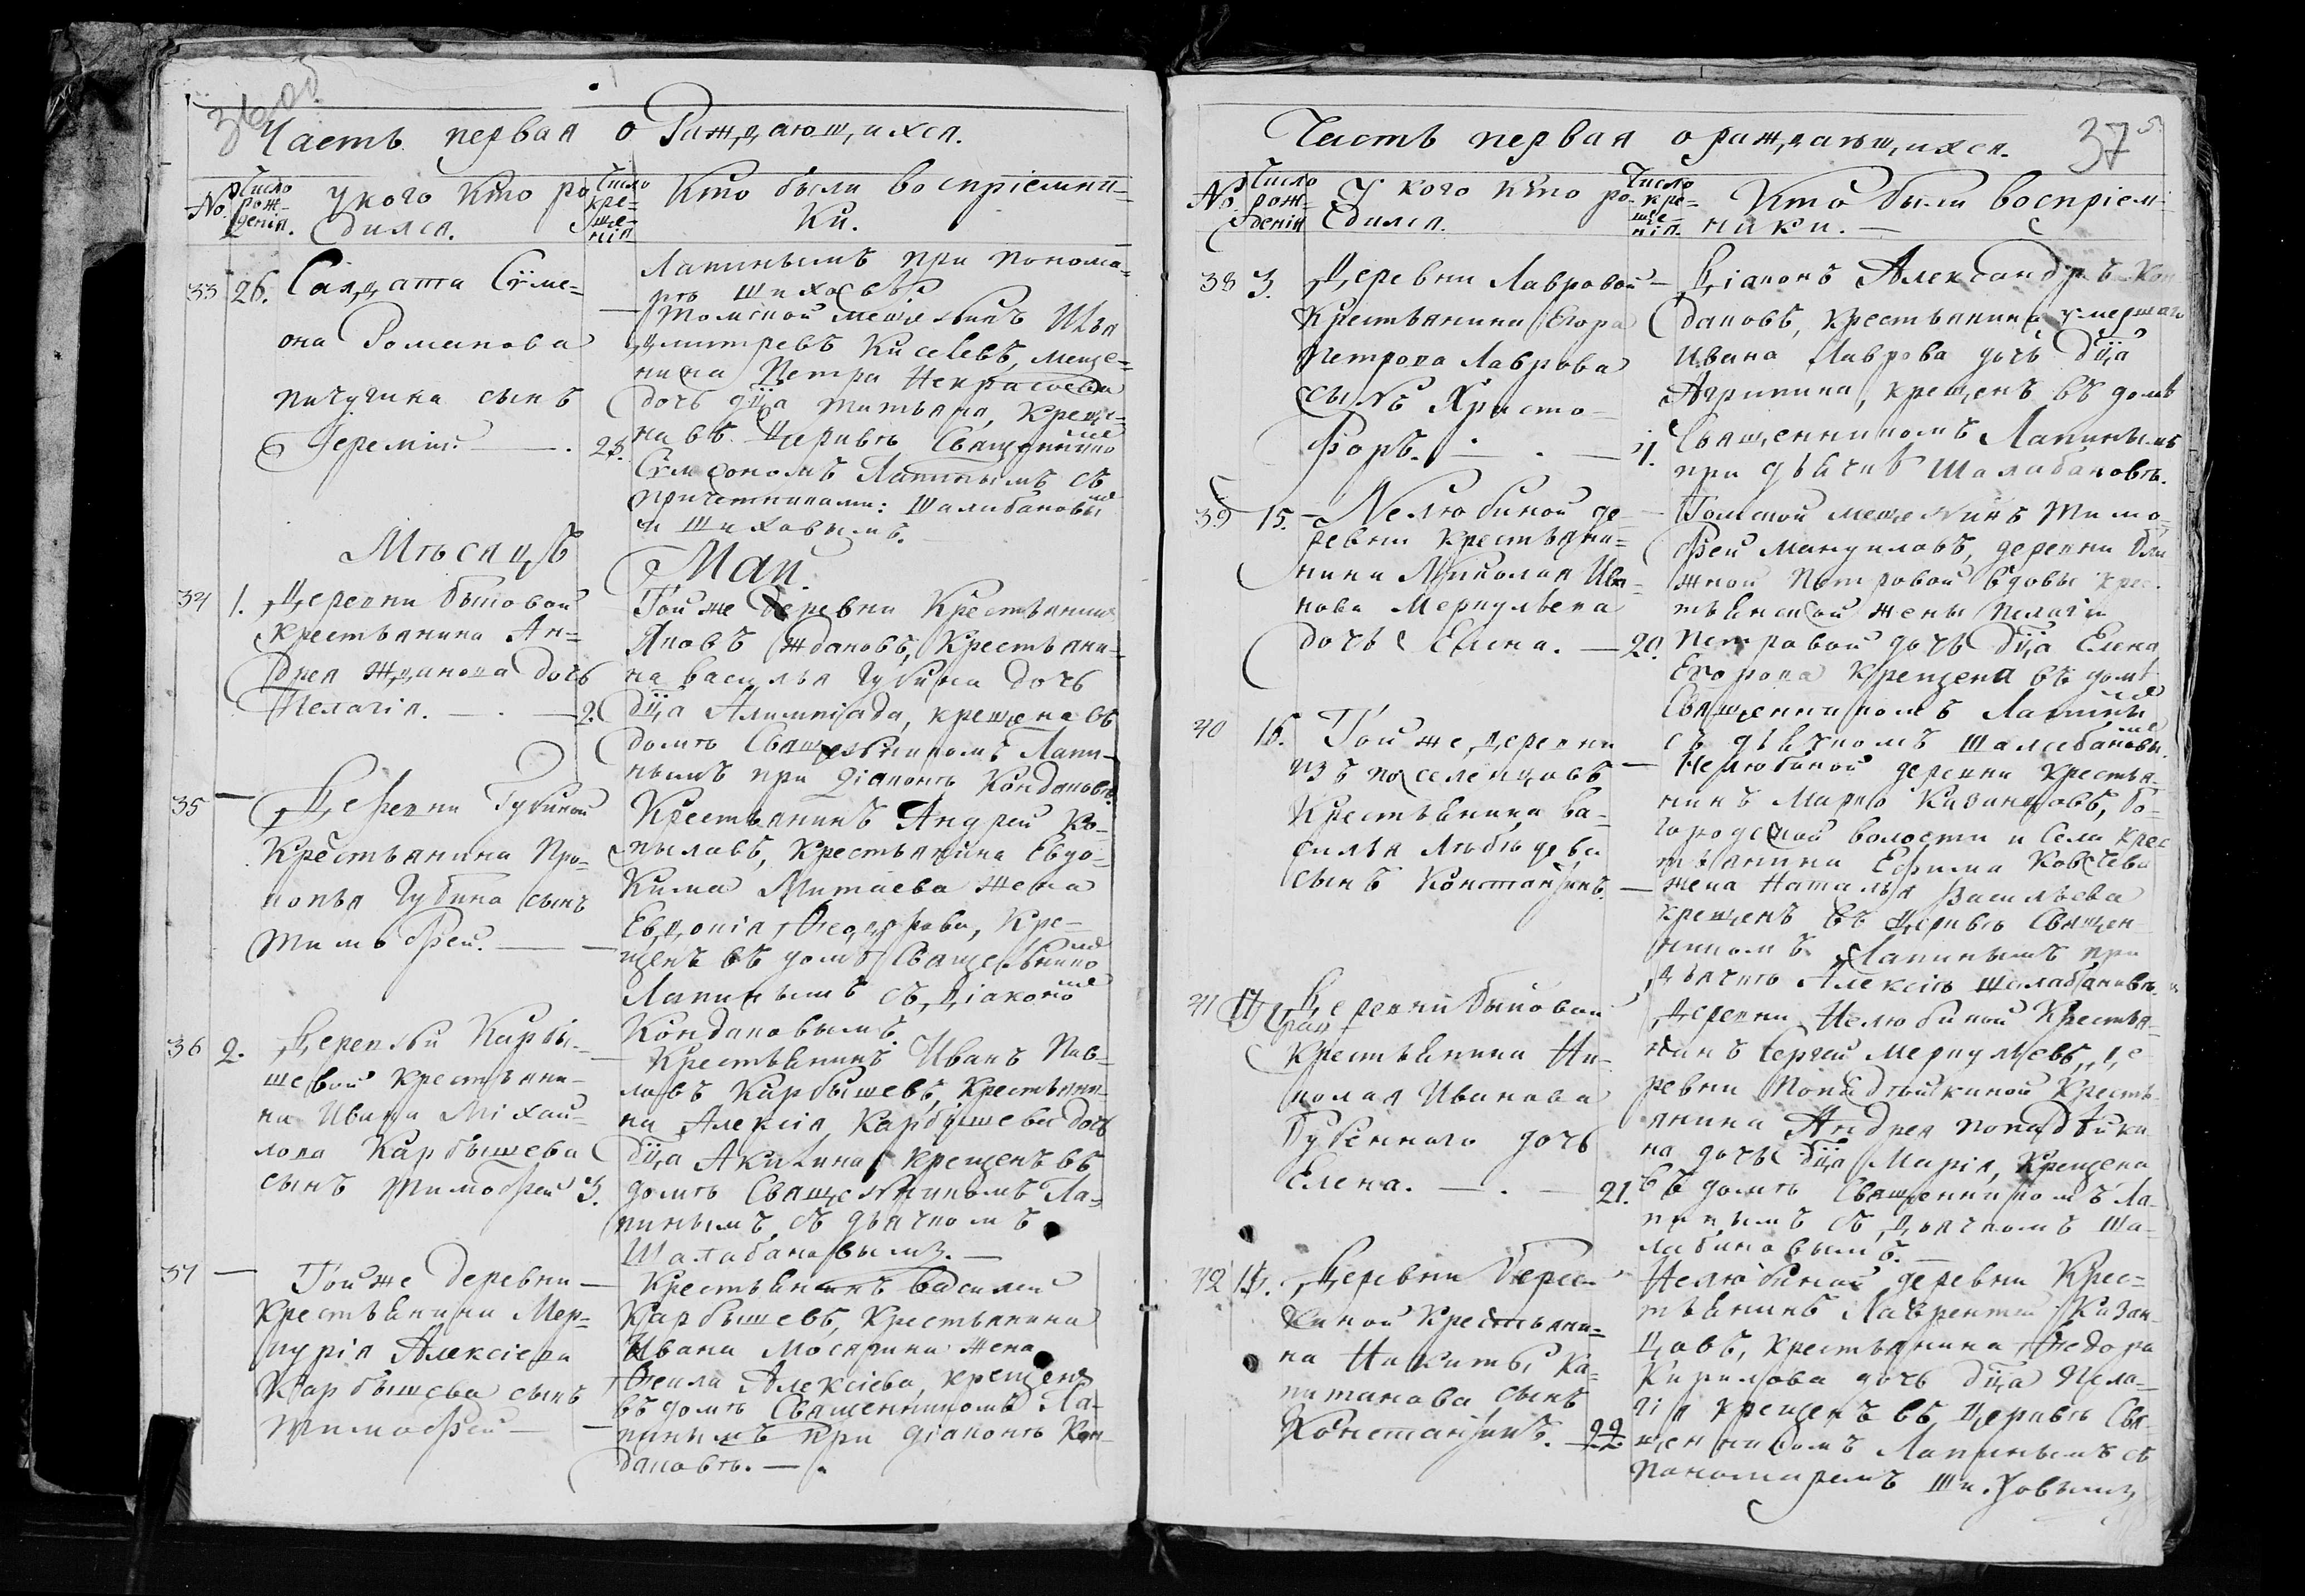 36 об
Часть первая о Раждающихся.
№. Число рождения. У кого кто родился. Число крещения Кто были воспріемники.
Лапинымъ при пономарѣ Шиховѣ
33 26. Салдата Сѵмеона Романова
Пичугина сынъ
Іеремій. — 28.
Томской мещенинъ Илья
Дмитревъ Киселевъ, мещенина Петра Некрасова
дочь дѣца Татьяна, крещена въ Церквѣ Священникомъ
Сѵмеономъ Лапинымъ съ
причетниками: Шалабановымъ
и Шиховымъ.
Мѣсяцъ Май.
34 1. Деревни Быковой
Крестьянина Андрея Жданова дочь
Пелагія. — 2.
Той же деревни Крестьянинъ
Яковъ Ждановъ, Крестьянина Василья Губина дочь
дѣца Алимпіада, крещена въ
домѣ Священникомъ Лапинымъ при діаконѣ Кондаковѣ.
35 — Деревни Губиной
Крестьянина Прокопья Губина сынъ
Тимофей. —
Крестьянинъ Андрей Копыловъ, Крестьянина Евдокима Митаева жена
Евдокія Ѳедорова, крещенъ въ домѣ Священникомъ
Лапинымъ съ діакономъ
Кондаковымъ.
36 2. Деревни Карбышевой крестьянина Ивана Михайлова Карбышева
сынъ Тимофей 3.
Крестьянинъ Иванъ Павловъ Карбышевъ, Крестьянина Алексія Карбышева дочь
дѣца Акилина, крещенъ въ
домѣ Священникомъ Лапинымъ, съ дьячкомъ
Шалабановымъ. —
37 — Той же деревни
Крестьянина Меркурія Алексіева
Карбышева сынъ
Тимофей —
Крестьянинъ Василей
Карбышевъ, Крестьянина
Ивана Мосягина жена
Ѳекла Алексіева, крещенъ
въ домѣ Священникомъ Лапинымъ при діаконѣ Кондаковѣ. —
37
Часть первая о раждающихся.
№. Число рожденія У кого кто родился. Число крещенія. Кто были воспріемники. —
38 3. Деревни Лавровой
Крестьянина Егора
Петрова Лаврова
сынъ Христофоръ. — 4.
Діаконъ Александръ Кондаковъ, крестьянина умершаго
Ивана Лаврова дочь дѣца
Агрипина, крещенъ въ домѣ
Священникомъ Лапинымъ
при дьячкѣ Шалабановѣ.
39 15. Нелюбиной деревни Крестьянина Николая Иванова Меркульева
дочь Елена. — 20.
Томской мещенинъ Тимофей Мануиловъ, деревни
Петровой вдовы крестьянской жены Пелагіи
Петровой дочь дѣца Елена
Егорова крещена въ домѣ
Священникомъ Лапинымъ
съ дьячкомъ Шалабановымъ.
40 16. Той же деревни
изъ поселенцовъ
Крестьянина Василья
сынъ Константинъ. —
Нелюбиной деревни Крестьянинъ Марко Казанцовъ, Богородской волости и Села крестьянина Ефима
жена Наталья Васильева
крещенъ въ Церквѣ Священникомъ Лапинымъ при
дьячкѣ Алексіѣ Шалабановѣ.
41 17 Деревни Быковой
Крестьянина Николая Иванова
Бубеннаго дочь
Елена. — 21.
Деревни Нелюбиной Крестьянинъ Сергей Меркульевъ, деревни Попадѣйкиной Крестьянина Андрея Попадѣйкина дочь дѣца Марія, Крещена
въ домѣ Священникомъ Лапинымъ съ Дьячкомъ Шалабановымъ.
42 18. Деревни Березкиной Крестьянина Никиты Капитанова сынъ
Константинъ. — 22
Нелюбиной деревни Крестьянинъ Лаврентей Казанцовъ, Крестьянина Ѳедора
Кирилова дочь дѣца Пелагія крещенъ въ Церквѣ Священникомъ Лапинымъ съ
пономаремъ Шиховымъ